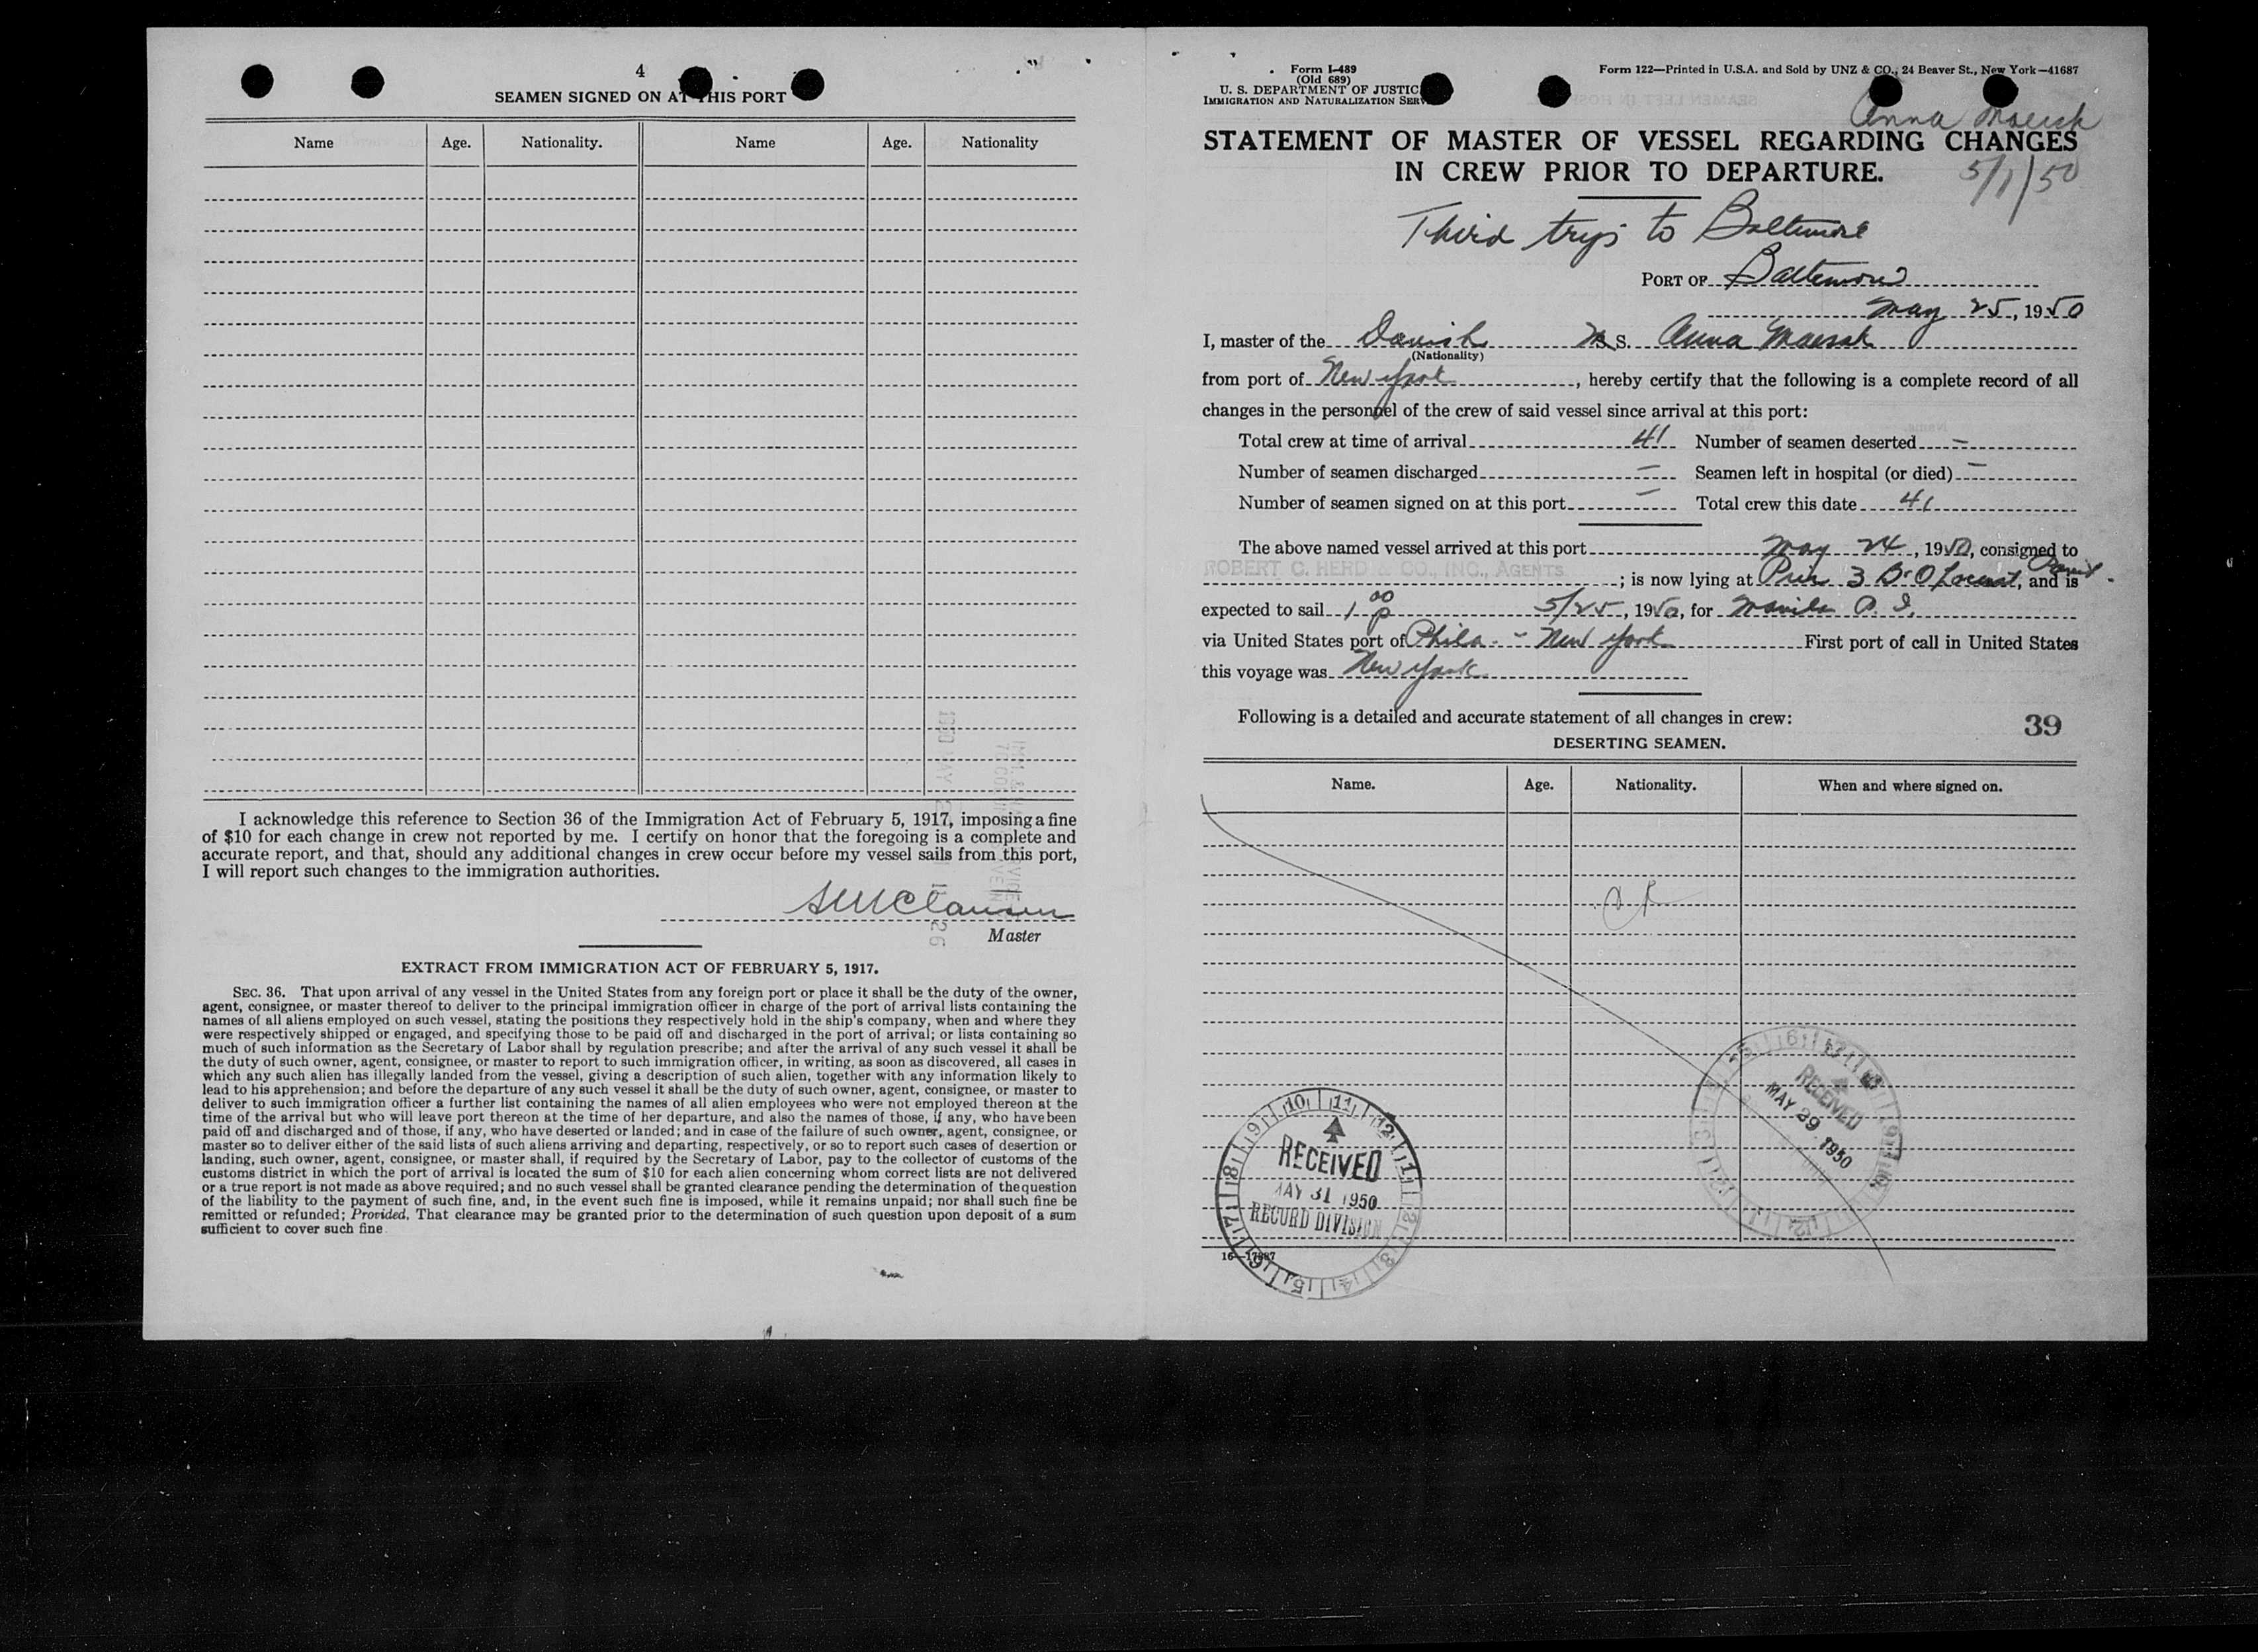 4
SEAMEN SIGNED ON AT THIS PORT
Name Age. Nationality. Name Age. Nationality
I acknowledge this reference to Section 36 of the Immigration Act of February 5, 1917, imposing a fine
of $10 for each change in crew not reported by me. I certify on honor that the foregoing is a complete and
accurate report, and that, should any additional changes in crew occur before my vessel sails from this port,
I will report such changes to the immigration authorities.
Master
EXTRACT FROM IMMIGRATION ACT OF FEBRUARY 5, 1917.
SEC. 36. That upon arrival of any vessel in the United States from any foreign port or place it shall be the duty of the owner,
agent, consignee, or master thereof to deliver to the principal immigration officer in charge of the port of arrival lists containing the
names of all aliens employed on such vessel, stating the positions they respectively hold in the ship's company, when and where they
were respectively shipped or engaged, and specifying those to be paid off and discharged in the port of arrival; or lists containing so
much of such information as the Secretary of Labor shall by regulation prescribe; and after the arrival of any such vessel it shall be
the duty of such owner, agent, consignee, or master to report to such immigration officer, in writing, as soon as discovered, all cases in
which any such alien has illegally landed from the vessel, giving a description of such alien, together with any information likely to
lead to his apprehension; and before the departure of any such vessel it shall be the duty of such owner, agent, consignee, or master to
deliver to such immigration officer a further list containing the names of all alien employees who were not employed thereon at the
time of the arrival but who will leave port thereon at the time of her departure, and also the names of those, if any, who have been
paid off and discharged and of those, if any, who have deserted or landed; and in case of the failure of such owner, agent, consignee, or
master so to deliver either of the said lists of such aliens arriving and departing, respectively, or so to report such cases of desertion or
landing, such owner, agent, consignee, or master shall, if required by the Secretary of Labor, pay to the collector of customs of the
customs district in which the port of arrival is located the sum of $10 for each alien concerning whom correct lists are not delivered
or a true report is not made as above required; and no such vessel shall be granted clearance pending the determination of the question
of the liability to the payment of such fine, and, in the event such fine is imposed, while it remains unpaid; nor shall such fine be
remitted or refunded; Provided, That clearance may be granted prior to the determination of such question upon deposit of a sum
sufficient to cover such fine.
Form I-489
(Old 689)
U. S. DEPARTMENT OF JUSTIC
IMMIGRATION AND NATURALIZATION SERV
Form 122—Printed in U.S.A. and Sold by UNZ & CO., 24 Beaver St., New York—41687
Anna Maersk
STATEMENT OF MASTER OF VESSEL REGARDING CHANGES
IN CREW PRIOR TO DEPARTURE.
5/1/50
Third trip to Baltimore
PORT OF Baltimore
May 25, 1950
I, master of the Danish M. S. Anna Maersk
(Nationality)
from port of New York, hereby certify that the following is a complete record of all
changes in the personnel of the crew of said vessel since arrival at this port:
Total crew at time of arrival 41 Number of seamen deserted —
Number of seamen discharged — Seamen left in hospital (or died) —
Number of seamen signed on at this port — Total crew this date 41
The above named vessel arrived at this port May 24, 1950, consigned to
ROBERT C. HERD & CO., INC., AGENTS ; is now lying at Pier 3 B&O Locust Point, and is
expected to sail 1 00 P 5/25, 1950, for Manila P. I.
via United States port of Phila. - New York First port of call in United States
this voyage was New York
Following is a detailed and accurate statement of all changes in crew:
39
DESERTING SEAMEN.
Name. Age. Nationality. When and where signed on.
RECEIVED
MAY 29 1950
RECEIVED
MAY 31 1950
RECORD DIVISION